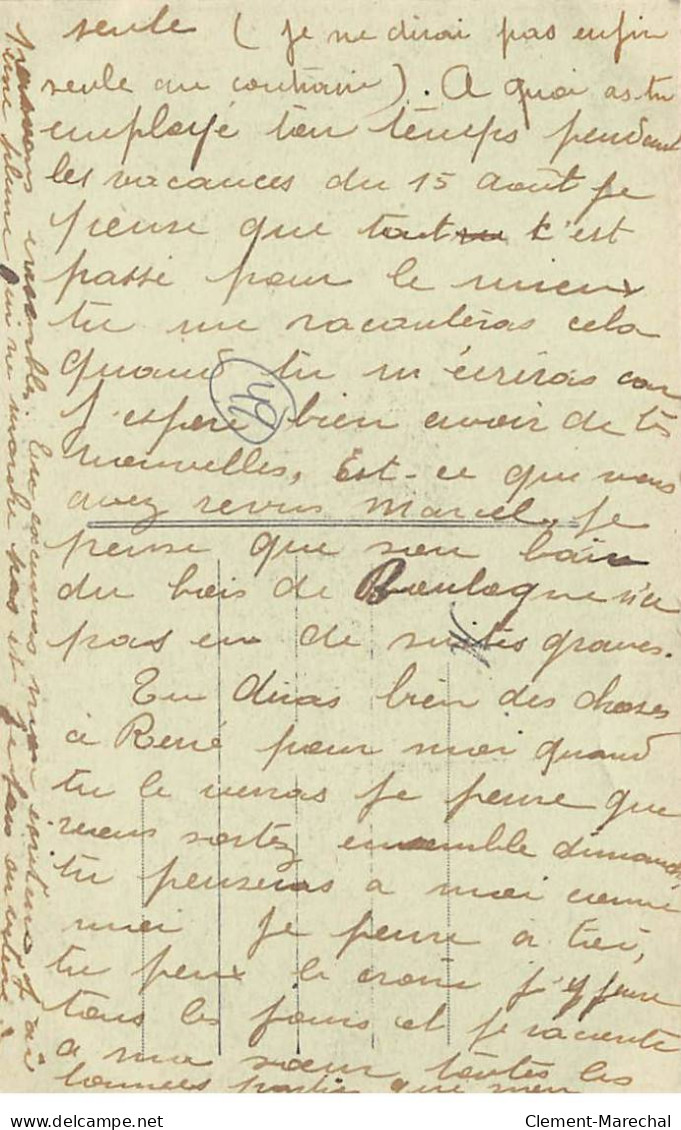 seule (je ne dirai pas enfin
seule au contraire). A quoi as tu
employé ton temps pendant
les vacances du 15 août je
pense que tout c'est
passé pour le mieux
tu me raconteras cela
quand tu m'écriras car
j'espère bien avoir de tes
nouvelles, Est-ce que vous
avez revus Marcel, je
pense que son bain
du bois de Boulogne n'a
pas eu de suites graves.
Tu diras bien des choses
à René pour moi quand
tu le verras je pense que
vous sortez ensemble dimanche
tu penseras a moi comme
moi je pense à toi,
tu peux le croire j'y pense
tous les jours et je raconte
a ma sœur toutes les
bonnes parties que nous
ensemble. Tu excuseras mon écriture j'ai
une plume qui ne marche pas et je
49
Clement-Marechal